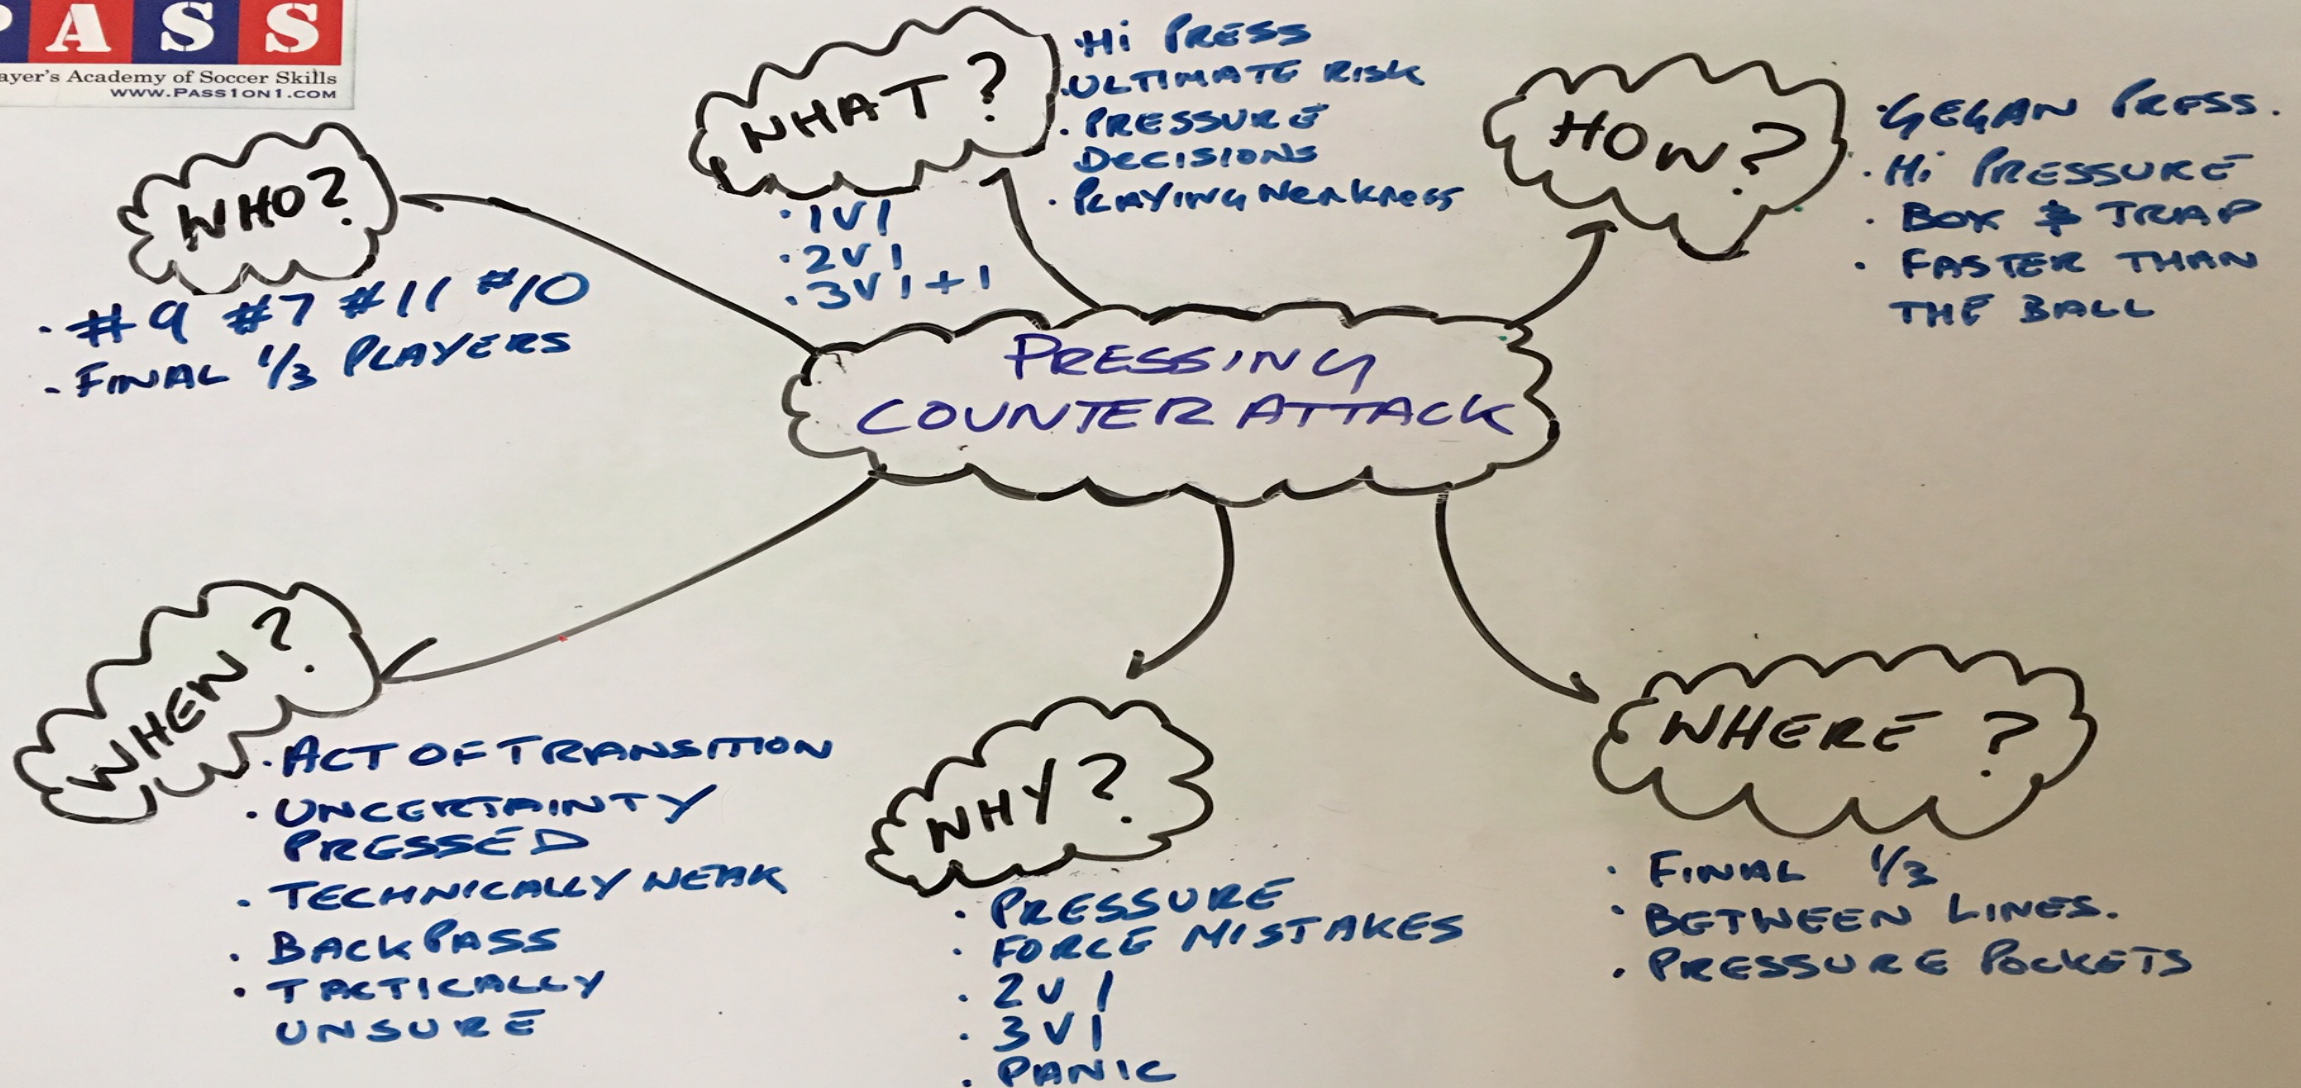 PASS
ayer's Academy of Soccer Skills
www.Pass1on1.com
WHO?
· #9 #7 #11 #10
- FINAL 1/3 PLAYERS
WHAT?
· Hi PRESS
· ULTIMATE RISK
· PRESSURE
DECISIONS
· PLAYING WEAKNESS
· 1V1
· 2V1
· 3V1+1
HOW?
· GEGAN PRESS.
· Hi PRESSURE
· BOX & TRAP
· FASTER THAN
THE BALL
PRESSING
COUNTER ATTACK
WHEN?
· ACT OF TRANSITION
· UNCERTAINTY
PRESSED
· TECHNICALLY WEAK
· BACK PASS
· TACTICALLY
UNSURE
WHY?
· PRESSURE
· FORCE MISTAKES
· 2V1
· 3V1
· PANIC
WHERE?
· FINAL 1/3
· BETWEEN LINES.
· PRESSURE POCKETS